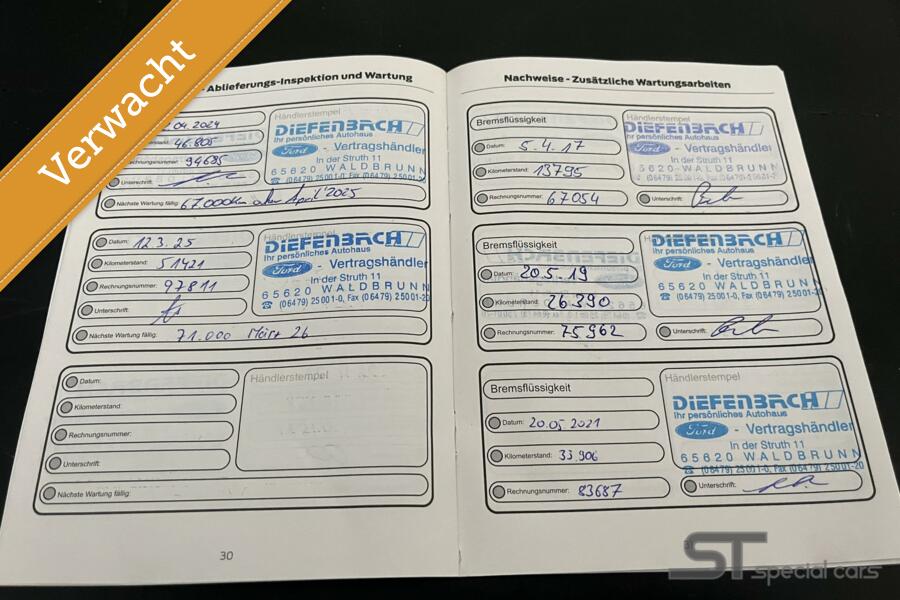 Verwacht
- Ablieferungs-Inspektion und Wartung
Händlerstempel
04.2024
46.805
Rechnungsnummer: 94685
Unterschrift:
Nächste Wartung fällig: 67.000km oder April 2025
DIEFENBACH
Ihr persönliches Autohaus
Ford - Vertragshändler
In der Struth 11
65620 WALDBRUNN
☎ (06479) 25001-0, Fax (06479) 25001-20
Datum: 12.3.25
Kilometerstand: 51421
Rechnungsnummer: 97811
Unterschrift:
Nächste Wartung fällig: 71.000 März 26
Händlerstempel
DIEFENBACH
Ihr persönliches Autohaus
Ford - Vertragshändler
In der Struth 11
65620 WALDBRUNN
☎ (06479) 25001-0, Fax (06479) 25001-20
Datum:
Kilometerstand:
Rechnungsnummer:
Unterschrift:
Nächste Wartung fällig:
Händlerstempel
30
Nachweise - Zusätzliche Wartungsarbeiten
Bremsflüssigkeit
Datum: 5.4.17
Kilometerstand: 13795
Rechnungsnummer: 67054
Händlerstempel
DIEFENBACH
Ihr persönliches Autohaus
Ford - Vertragshändler
In der Struth 11
65620 WALDBRUNN
☎ (06479) 25001-0, Fax (06479) 25001-20
Unterschrift:
Bremsflüssigkeit
Datum: 20.5.19
Kilometerstand: 26.390
Rechnungsnummer: 75962
DIEFENBACH
Ihr persönliches Autohaus
Ford - Vertragshändler
In der Struth 11
65620 WALDBRUNN
☎ (06479) 25001-0, Fax (06479) 25001-20
Unterschrift:
Bremsflüssigkeit
Datum: 20.05.2021
Kilometerstand: 33.906
Rechnungsnummer: 83687
Händlerstempel
DIEFENBACH
Ihr persönliches Autohaus
Ford - Vertragshändler
In der Struth 11
65620 WALDBRUNN
☎ (06479) 25001-0, Fax (06479) 25001-20
Unterschrift:
ST special cars